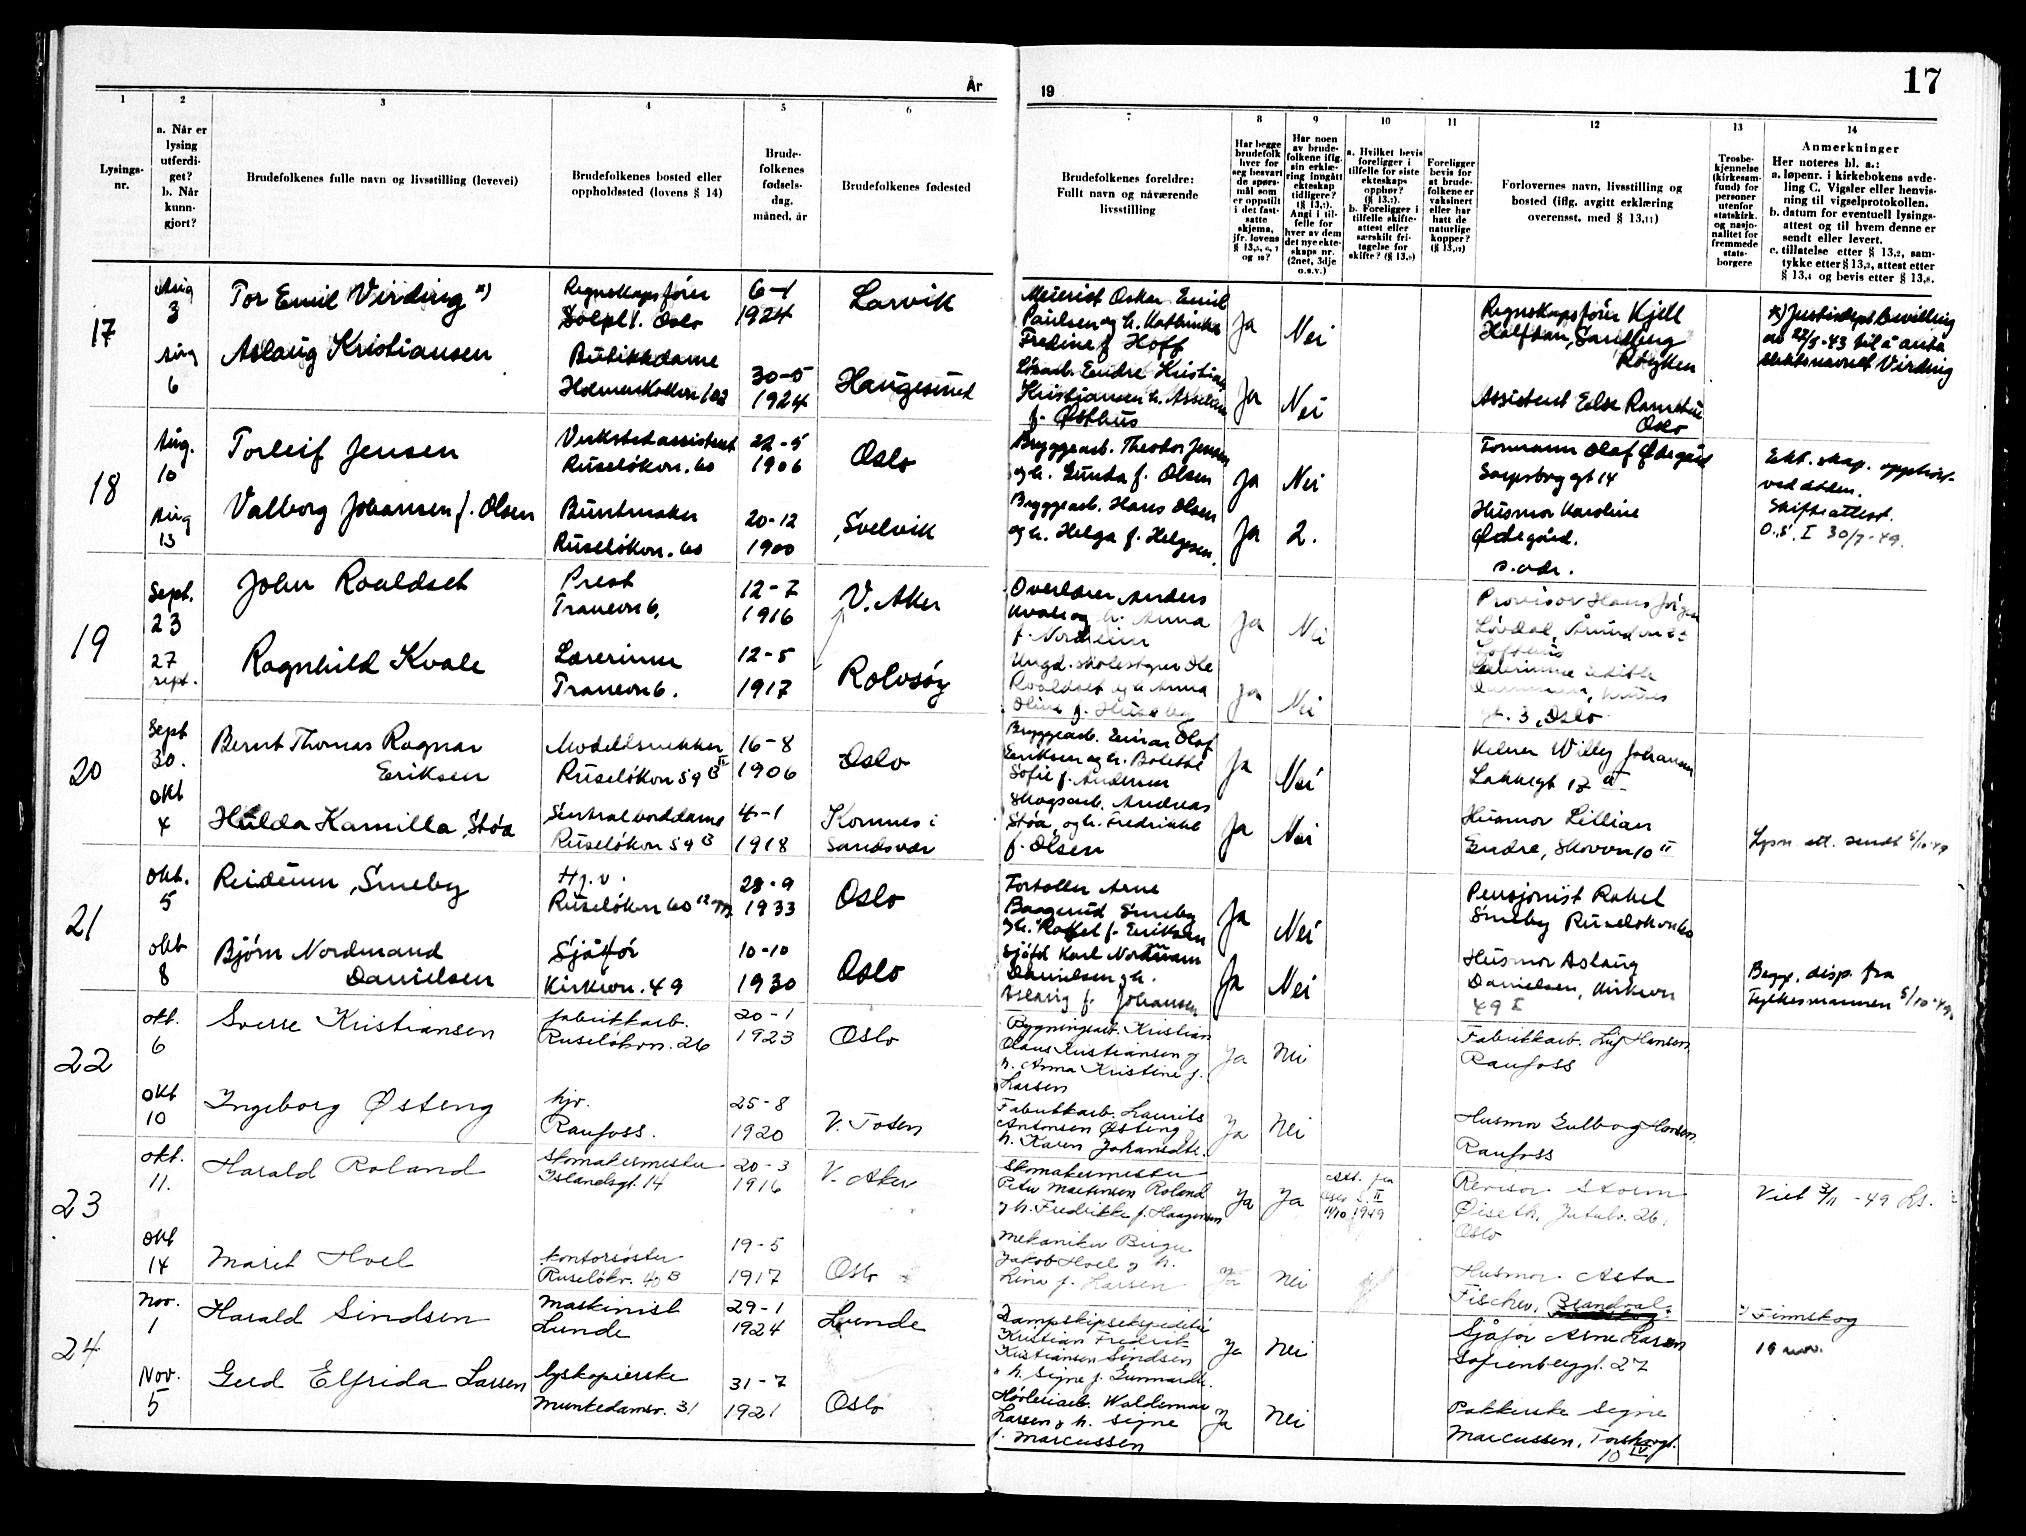 År
19
17
1
2
3
4
5
6
7
8
9
10
11
12
13
14
Lysings-
nr.
a. Når er
lysing
utferdi-
get?
b. Når
kunn-
gjort?
Brudefolkenes fulle navn og livsstilling (levevei)
Brudefolkenes bosted eller
oppholdssted (lovens § 14)
Brude-
folkenes
fødsels-
dag,
måned, år
Brudefolkenes fødested
Brudefolkenes foreldre:
Fullt navn og nåværende
livsstilling
Har begge
brudefolk
hver for
seg besvart
de spørs-
mål som
er oppstilt
i det fast-
satte
skjema,
jfr. lovens
Har noen
av brude-
folkene iflg.
sin erklæ-
ring inngått
ekteskap
tidligere?
Angi i til-
felle for
hver av dem
det nye ekte-
skaps nr.
(2net, 3dje
o.s.v.)
a. Hvilket bevis
foreligger i
tilfelle for siste
ekteskaps
opphør?
b. Foreligger i
tilfelle skifte-
attest eller
særskilt fri-
tagelse for
skifte?
Foreligger
bevis for
at brude-
folkene er
vaksinert
eller har
hatt de
naturlige
kopper?
Forlovernes navn, livsstilling og
bosted (iflg. avgitt erklæring
overensst. med § 13,11)
Trosbe-
kjennelse
(kirkesam-
fund) for
personer
utenfor
statskirk.
og nasjo-
nalitet for
fremmede
stats-
borgere
Anmerkninger
Her noteres bl. a.:
a. løpenr. i kirkebokens avde-
ling C. Vigsler eller henvis-
ning til vigselprotokollen.
b. datum for eventuell lysings-
attest og til hvem denne er
sendt eller levert.
c. tillatelse etter § 13,2, sam-
tykke etter § 13,3, attest etter
§ 13,4 og bevis etter § 13,8.
17
Aug
3
Tor Emil Virding *)
Regnskapsfører
Solpl 1. Oslo
6-1
1924
Larvik
Meierist Oskar Emil
Paulsen og h. Kathinka
Fredine f. Hoff
Ja
Nei
Regnskapsfører Kjell
Halfdan Sandberg
Røyken
*) Justisdept. bevilling
av 22/5-43 til å anta
slektsnavnet Virding
Aug
6
Aslaug Kristiansen
Butikkdame
Holmenkollvn 102
30-5
1924
Haugesund
Endre Kristian
Kristiansen h.
f. Østhus
Ja
Nei
Assistent Else
Oslo
18
Aug.
10
Torleif Jensen
Verkstedassistent
Ruseløkvn. 60
22-5
1906
Oslo
Bryggearb. Theodor Jensen
og h. Gunda f. Olsen
Ja
Nei
Formann Olaf Ødegård
Sarpsborg gt 14
Ekt. skap. oppløst
ved døden.
Aug
13
Valborg Johansen f. Olsen
Buntmaker
Ruseløkvn. 60
20-12
1900
Svelvik
Bryggearb. Hans Olsen
og h. Helga f. Helgesen.
Ja
2.
Husmor Karoline
Ødegård.
s. adr.
Skifteattest.
O.S. I 30/7-49.
19
Sept.
23
John Roaldset
Prest
Tranevn 6.
12-7
1916
V. Aker
Overlærer Anders
Kvale og h. Anna
f. Nordheim
Ja
Nei
Provisor Hans Jørgen
Løvdal,
27
sept.
Ragnhild Kvale
Lærerinne
Tranevn 6.
12-5
1917
Rolvsøy
Ungd. skolestyrer Ole
Roaldset og h. Anna
Oline f.
Ja
Nei
Lærerinne Edith
gt. 3, Oslo
20
Sept
30.
Bernt Thomas Ragnar
Eriksen
Modellsnekker
Ruseløkvn 59 B II
16-8
1906
Oslo
Bryggearb. Einar Olaf
Eriksen og h. Bolette
Sofie f. Andersen
Ja
Nei
Kelner Willy Johansen
Lakkegt 12 a
Okt
4
Hulda Kamilla Støa
Sentralborddame
Ruseløkvn 59 B
4-1
1918
Komnes i
Sandsvær
Skogsarb. Andreas
Støa og h. Fredrikke
f. Olsen
Ja
Nei
Husmor Lillian
Endre, Skovvn 10 II
Lysn. att. sendt 5/10-49
21
Okt.
5
Reidunn Smeby
Hj. v.
Ruseløkvn 60
28-9
1933
Oslo
Fortoller Arne
Baagerud Smeby
og h. Rakel f. Eriksen
Ja
Nei
Pensjonist Rakel
Smeby Ruseløkvn 60
Okt
8
Bjørn Nordmand
Danielsen
Sjåfør
Kirkevn. 49
10-10
1930
Oslo
Sjåfør Karl Nordmann
Danielsen og h.
Aslaug f. Johansen
Ja
Nei
Husmor Aslaug
Danielsen, Kirkevn
49 I
Begge. disp. fra
Fylkesmannen 5/10-49
22
Okt.
6
Sverre Kristiansen
fabrikkarb.
Ruseløkvn. 26
20-1
1923
Oslo
Bygningsarb. Kristian
Olaus Kristiansen og
h. Anna Kristine f.
Larsen
Ja
Nei
Fabrikkarb. Leif Hansen
Raufoss
Okt
10
Ingeborg Østeng
hjv.
Raufoss.
25-8
1920
V. Toten
Fabrikkarb. Laurits
Antonsen Østeng
h. Karen Johansdtr.
Ja
Nei
Husmor Gulborg Hansen
Raufoss
23
Okt.
11.
Harald Roland
Skomakermester
Islandsgt. 14
20-3
1916
V. Aker
Skomakermester
Peter Martinsen Roland
og h. Fredrikke f. Haagensen
Ja
Ja
Att. fra
Oslo S. II
11/10 1949
Revisor Storm
Øiseth, Jutulv. 26,
Oslo
Viet 3/11-49
Okt
14
Marit Hoel
Kontorsøster
Ruseløkv. 40 B
19-5
1917
Oslo
Mekaniker Birger
Jakob Hoel og h.
Lina f. Larsen
Ja
Nei
Husmor Asta
Fischer, Brandval.
24
Nov.
1
Harald Sindsen
Maskinist
Lunde
29-1
1924
Lunde
Dampskipsekspeditør
Kristian Fredrik
Kristiansen Sindsen
og h. Signe f. Gunnarsdtr.
Ja
Nei
Sjåfør Arne Larsen
Sofienberggt. 27
Finnskog
19 nov.
Nov.
5
Gerd Elfrida Larsen
lyskopierske
Munkedamsv. 31
31-7
1921
Oslo
Høvleriarb. Waldemar
Larsen og h. Signe
f. Marcussen
Ja
Nei
Pakkerske Signe
Marcussen, Torshovgt.
10 IV